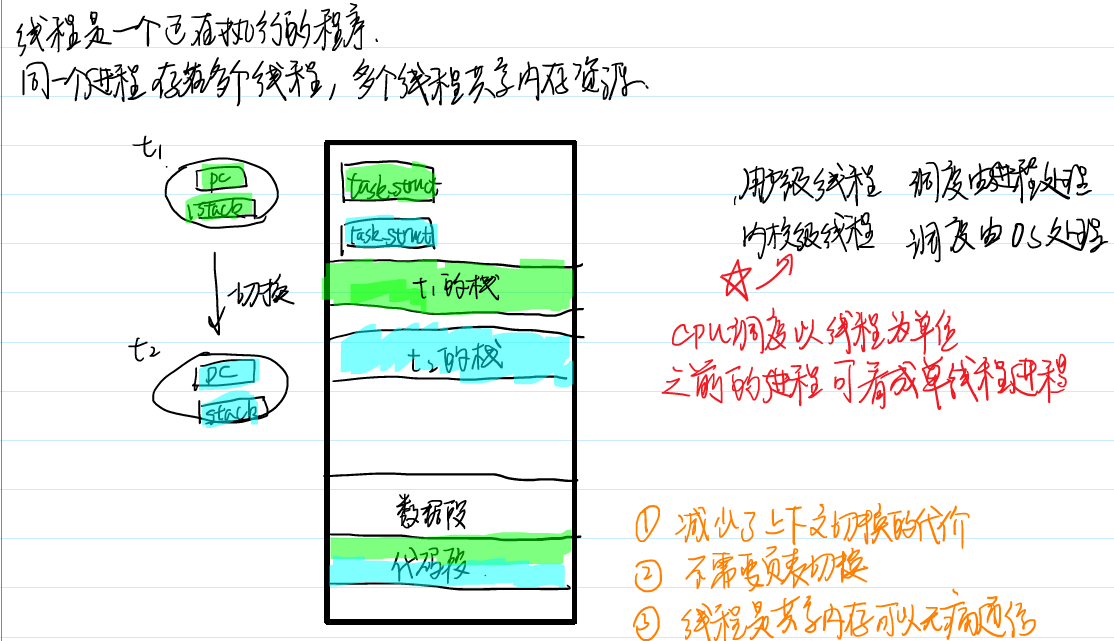 线程是一个正在执行的程序.
同一个进程存在多个线程，多个线程共享内存资源.
t1
pc
stack
切换
t2
pc
stack
task_struct
task_struct
t1的栈
t2的栈
数据段
代码段
用户级线程 调度由进程处理
内核级线程 调度由OS处理
CPU调度以线程为单位
之前的进程可看成单线程进程
① 减少了上下文切换的代价
② 不需要页表切换
③ 线程是共享内存可以无痛通信